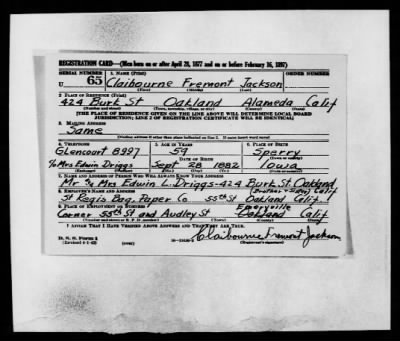 REGISTRATION CARD—(Men born on or after April 28, 1877 and on or before February 16, 1897)
SERIAL NUMBER 1. NAME (Print) ORDER NUMBER
U 65 Claibourne Fremont Jackson
(First) (Middle) (Last)
2. PLACE OF RESIDENCE (Print)
424 Burk St Oakland Alameda Calif
(Number and street) (Town, township, village, or city) (County) (State)
[THE PLACE OF RESIDENCE GIVEN ON THE LINE ABOVE WILL DETERMINE LOCAL BOARD
JURISDICTION; LINE 2 OF REGISTRATION CERTIFICATE WILL BE IDENTICAL]
3. MAILING ADDRESS
Same
(Mailing address if other than place indicated on line 2. If same insert word same)
4. TELEPHONE 5. AGE IN YEARS 6. PLACE OF BIRTH
Glencourt 8997 59 Sperry
DATE OF BIRTH (Town or county)
c/o Mrs Edwin Driggs Sept 28 1882 Iowa
(Exchange) (Number) (Mo.) (Day) (Yr.) (State or country)
7. NAME AND ADDRESS OF PERSON WHO WILL ALWAYS KNOW YOUR ADDRESS
Mr & Mrs Edwin L. Driggs-424 Burk St. Oakland
(Brother & Sister) Calif
8. EMPLOYER'S NAME AND ADDRESS
St Regis Bag. Paper Co 55th St Oakland Calif.
9. PLACE OF EMPLOYMENT OR BUSINESS Emeryville
Corner 55th St and Audley St Oakland Calif
(Number and street or R. F. D. number) (Town) (County) (State)
I AFFIRM THAT I HAVE VERIFIED ABOVE ANSWERS AND THAT THEY ARE TRUE.
D. S. S. Form 1
(Revised 4-1-42) (over) Claibourne Fremont Jackson
(Registrant's signature)